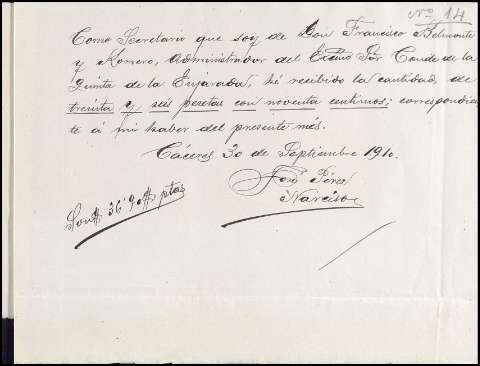 Nº 14
Como Secretario que soy de Don Francisco Belmonte
y Romero, Administrador del Excmo Sor Conde de la
Quinta de la Enjarada, hé recibido la cantidad de
treinta y seis pesetas con noventa centimos; correspondien
te á mi haber del presente més.
Cáceres 30 de Septiembre 1910.
José Pérez
Narciso
Son # 36'90 # ptas